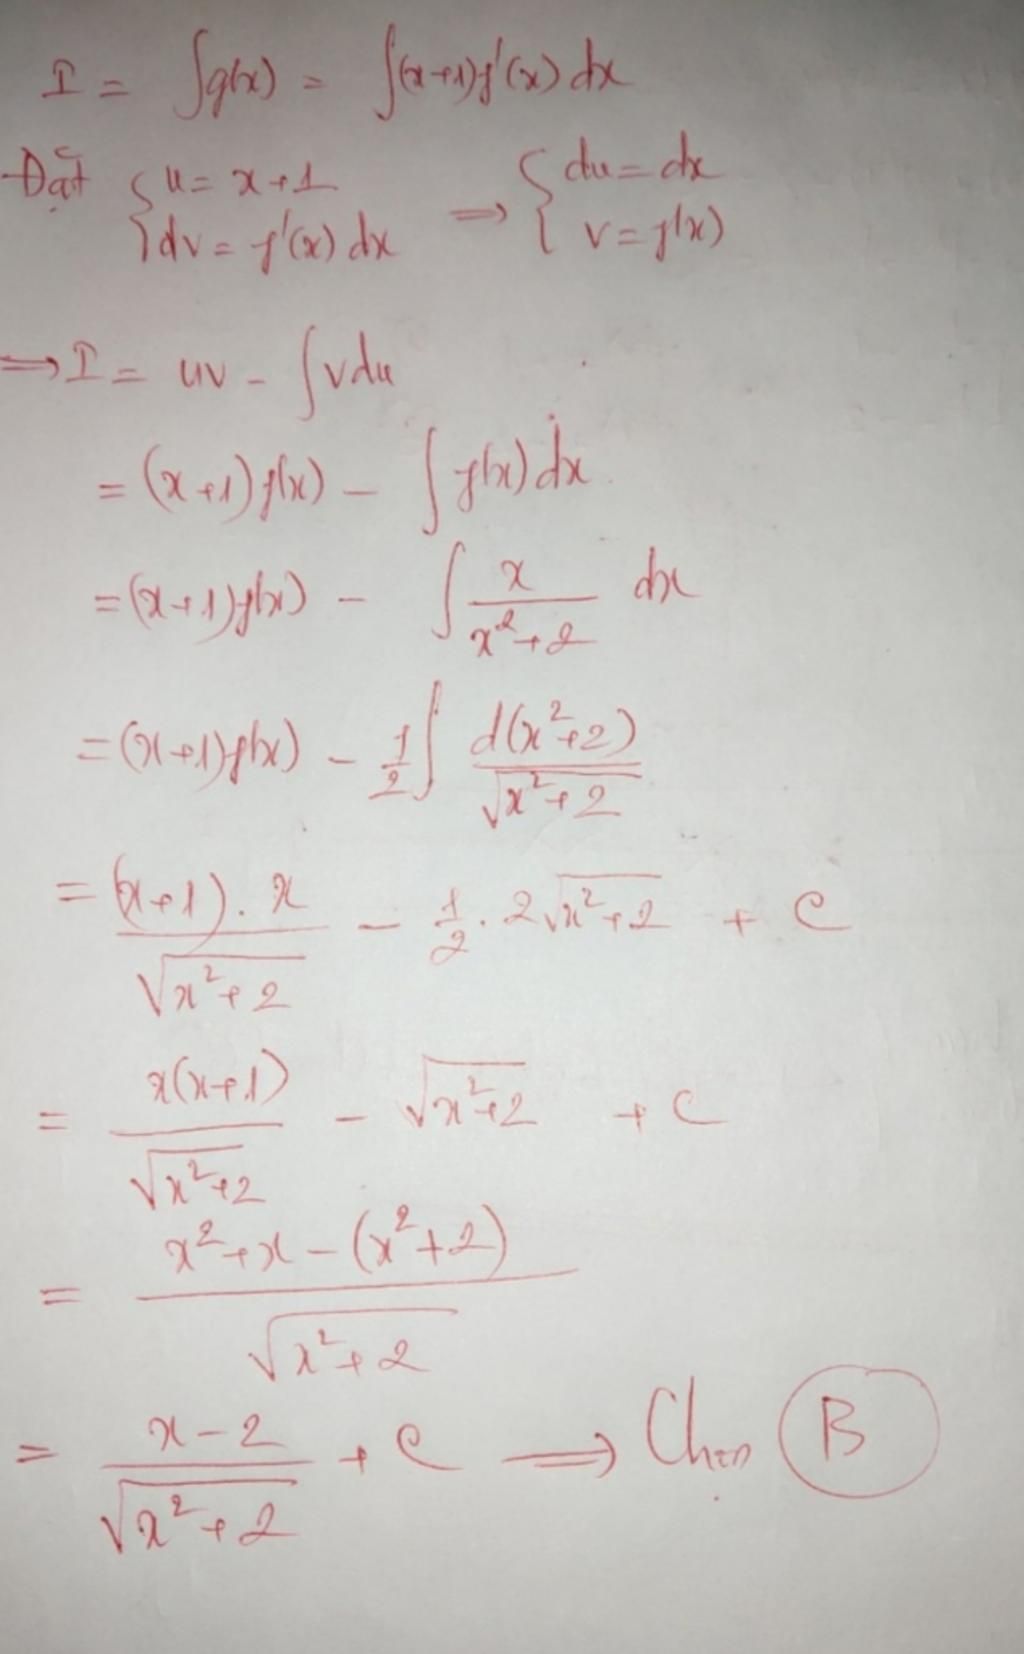 I = ∫g(x) = ∫(x+1)f'(x) dx
Đặt { u = x+1 ⇒ { du = dx
dv = f'(x) dx v = f(x)
⇒ I = uv - ∫vdu
= (x+1)f(x) - ∫f(x) dx
= (x+1)f(x) - ∫ x/(x²+2) dx
= (x+1)f(x) - 1/2 ∫ d(x²+2)/√(x²+2)
= (x+1).x/√(x²+2) - 1/2 . 2√(x²+2) + C
= x(x+1)/√(x²+2) - √(x²+2) + C
= (x²+x-(x²+2))/√(x²+2)
= (x-2)/√(x²+2) + C ⇒ Chọn B